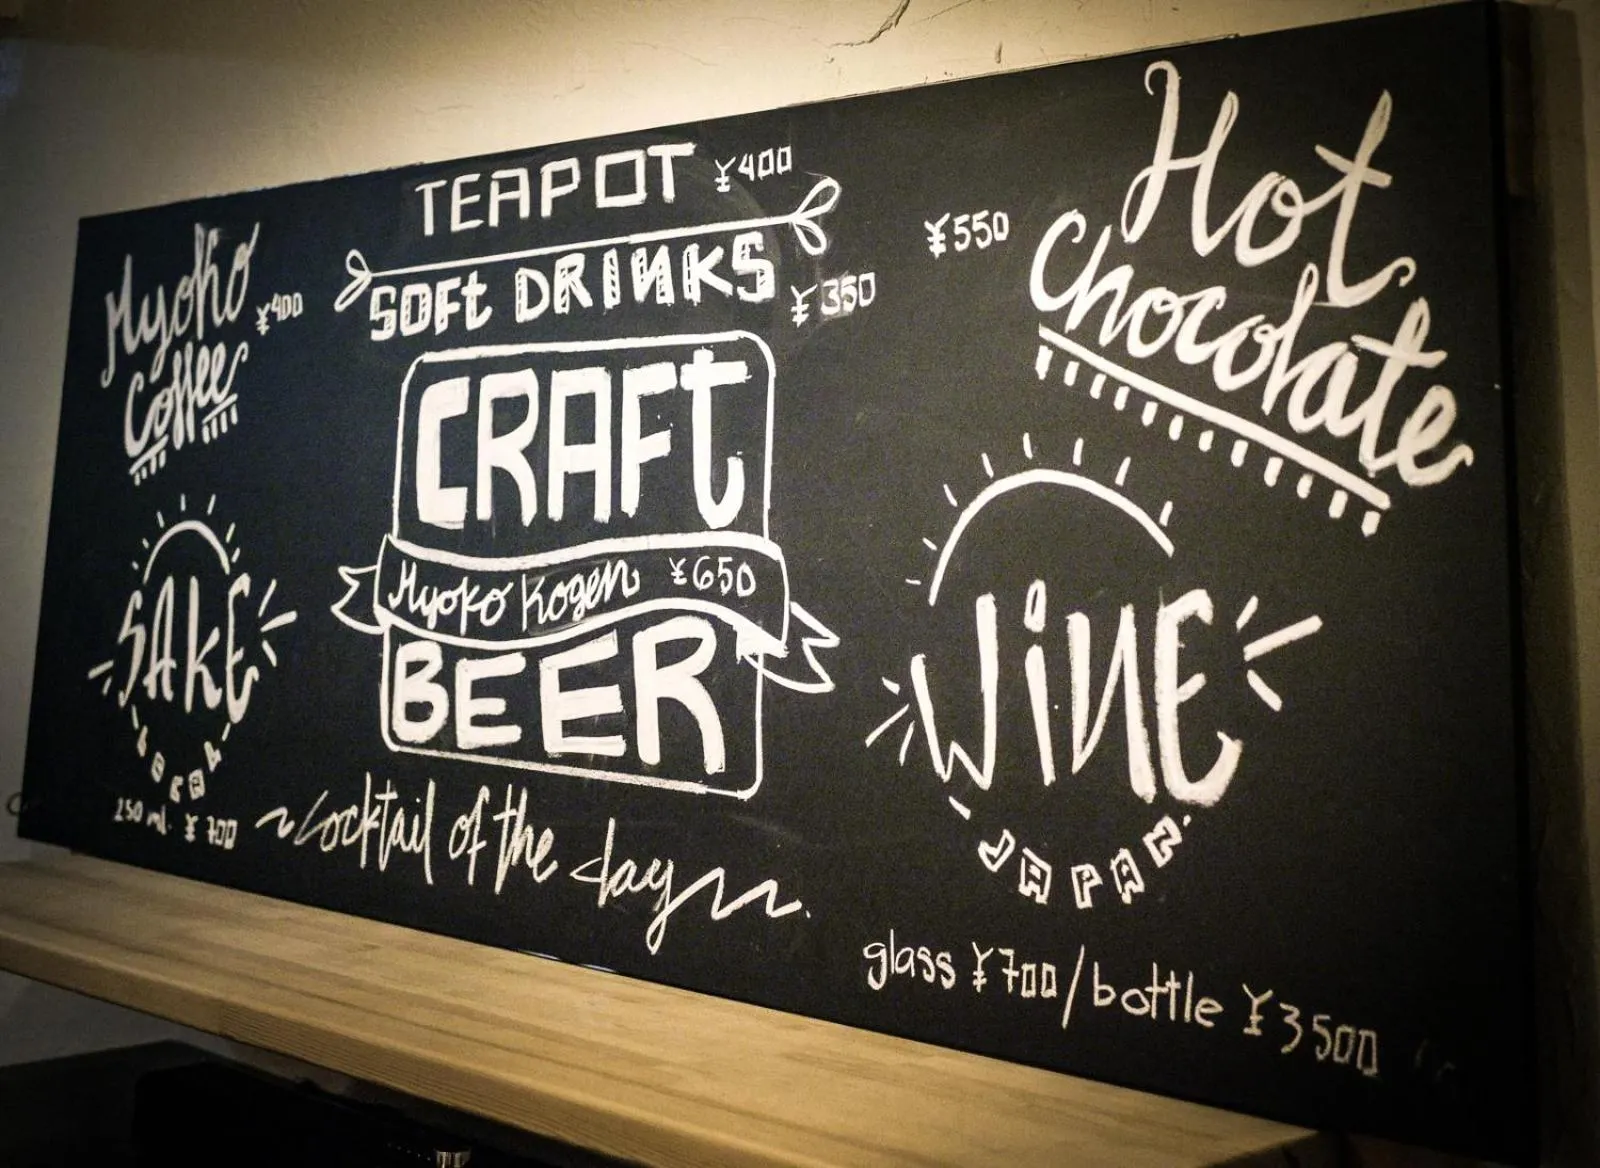 Myoko
Coffee
¥400
SAKE
LOCAL
250 ml. ¥ 700
TEAPOT ¥400
SOFt DRINKS ¥350
CRAFt
Myoko Kogen ¥650
BEER
~cocktail of the day~
Hot
Chocolate
¥550
WiNE
JAPAN
glass ¥700/bottle ¥3500